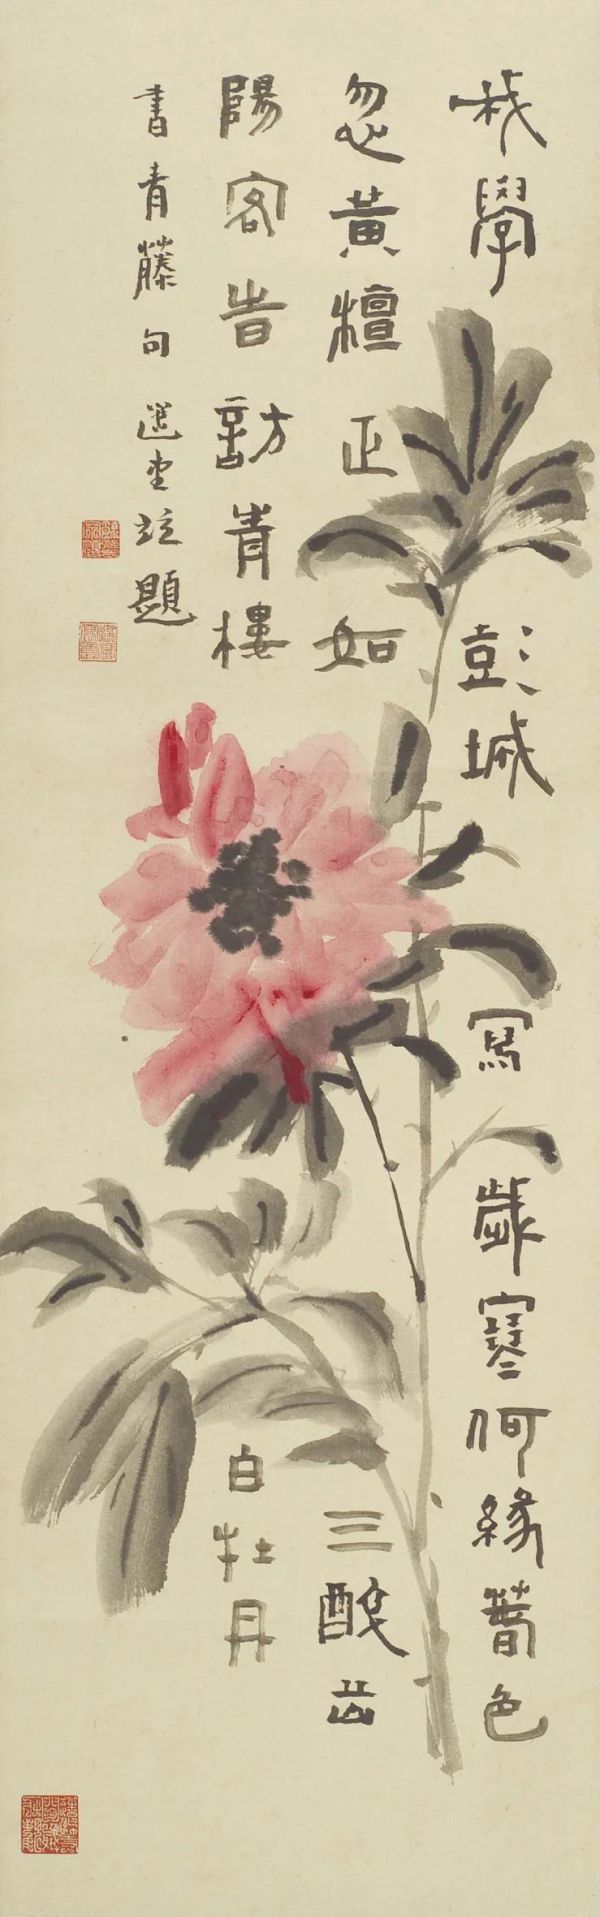 我學彭城寫歲寒何緣萅色
忽黃檀正如三醉岳
陽客旹訪青樓白牡丹
書青藤句選堂竝題